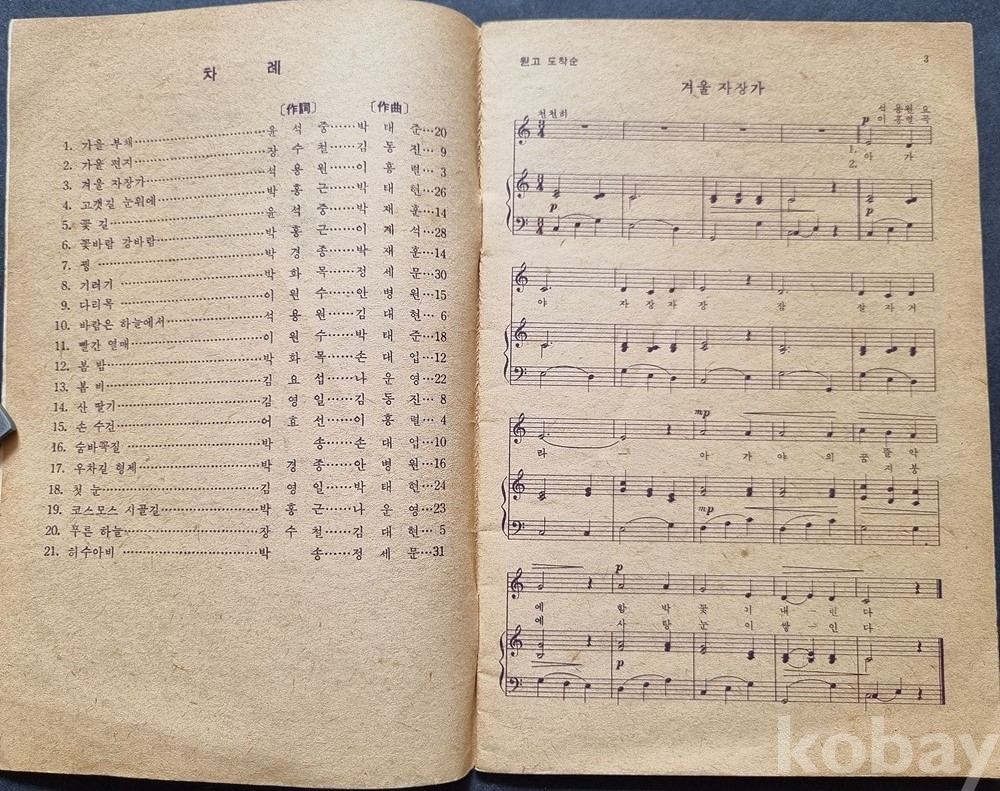 차 례
〔作詞〕 〔作曲〕
1. 가을 부채 윤 석 중 박 태 준 20
2. 가을 편지 장 수 철 김 동 진 9
3. 겨울 자장가 석 용 원 이 흥 렬 3
4. 고갯길 눈위에 박 홍 근 박 태 현 26
5. 꽃 길 윤 석 중 박 재 훈 14
6. 꽃바람 강바람 박 홍 근 이 계 석 28
7. 꿩 박 경 종 박 재 훈 14
8. 기러기 박 화 목 정 세 문 30
9. 다리목 이 원 수 안 병 원 15
10. 바람은 하늘에서 석 용 원 김 대 현 6
11. 빨간 열매 이 원 수 박 태 준 18
12. 봄 밤 박 화 목 손 대 업 12
13. 봄 비 김 요 섭 나 운 영 22
14. 산 딸기 김 영 일 김 동 진 8
15. 손 수건 어 효 선 이 흥 렬 4
16. 숨바꼭질 박 송 손 대 업 10
17. 우차길 형제 박 경 종 안 병 원 16
18. 첫 눈 김 영 일 박 태 현 24
19. 코스모스 시골길 박 홍 근 나 운 영 23
20. 푸른 하늘 장 수 철 김 대 현 5
21. 허수아비 박 송 정 세 문 31
원고 도착순 3
겨울 자장가
석 용원 요
천천히 p 이 흥렬 곡
1. 아 가
2.
p p
야 자 장 자 장 잠 잘 자 거
mp
라 － 아 가 야 의 꿈 뜰 악
지 붕
mp
p
에 함 박 꽃 이 내 － 린 다
에 사 탕 눈 이 쌓 － 인 다
p
kobay